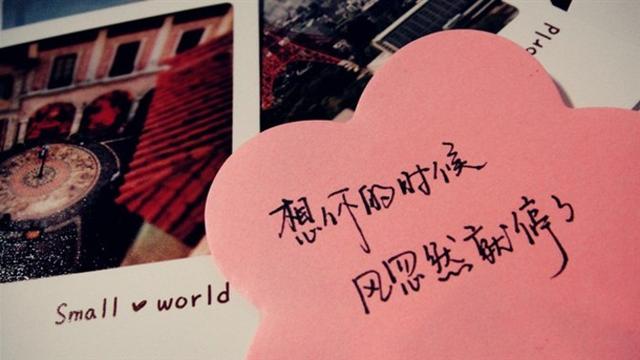 想你的时候
风忽然就停了
Small ❤ world
orld